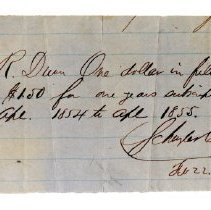 R. Dunn One dollar in full
$1.50 for one years subscript
Apl. 1854 to Apl 1855.
Feb 22